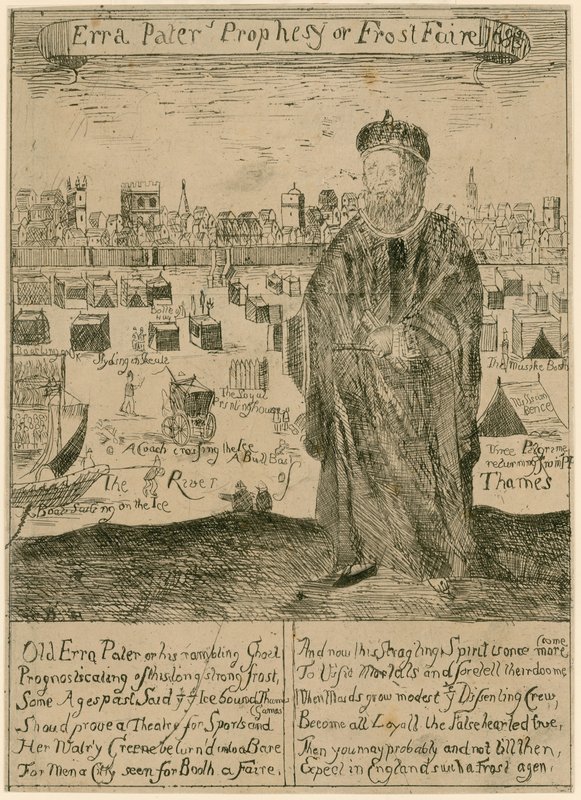 Erra Pater's Prophesy or Frost Faire
Bolle
Slyding on Skeats
The Loyal
Printinghouse
The Musike Booth
A Coach crossing the Ice
A Bull Bait
Three Pilgrims
returning from
The River Thames
Boats Sailing on the Ice
Old Erra Pater or his rambling Ghost
Prognosticating of this long strong frost,
Some Ages past, Said yt ye Ice bound Thames
Shoud prove a Theatre for Sports and Games
Her Watry Greene be turn'd into a Bare
For Men a Citty seem for Booths a Faire.
And now this Stragling Spirit is once more come
To Visit Mortals and foretell their doome
When Maids grow modest ye Dissenting Crew,
Become all Loyall the Falsehearted true,
Then you may probably and not till then,
Expect in England such a Frost agen.